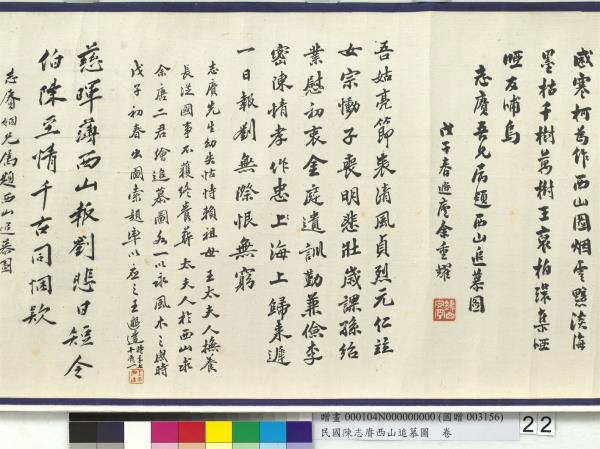 感寒柯為作西山圖烟雲黯淡海
墨枯千樹萬樹王裒柏環集啞
啞反哺烏
志賡吾兄属題西山追慕圖
戊子春遯廬余重耀
吾姑亮節表清風貞烈元仁註
女宗慟子喪明悲壯歲課孫紹
業慰初衷金庭遺訓勤兼儉李
密陳情孝作忠上海上歸來遲
一日報劉無際恨無窮
志賡先生幼失怙恃賴祖母王太夫人撫養
長從國事不獲終養葬太夫人於西山求
余唐二君繪追慕圖各一以永風木之感時
戊子初春出圖索題率以應之王
慈暉薄西山報劉悲日短令
伯陳至情千古同悃款
志賡姻兄属題西山追慕圖
贈畫 000104N000000000 (國贈 003156)
民國陳志賡西山追慕圖 卷
22